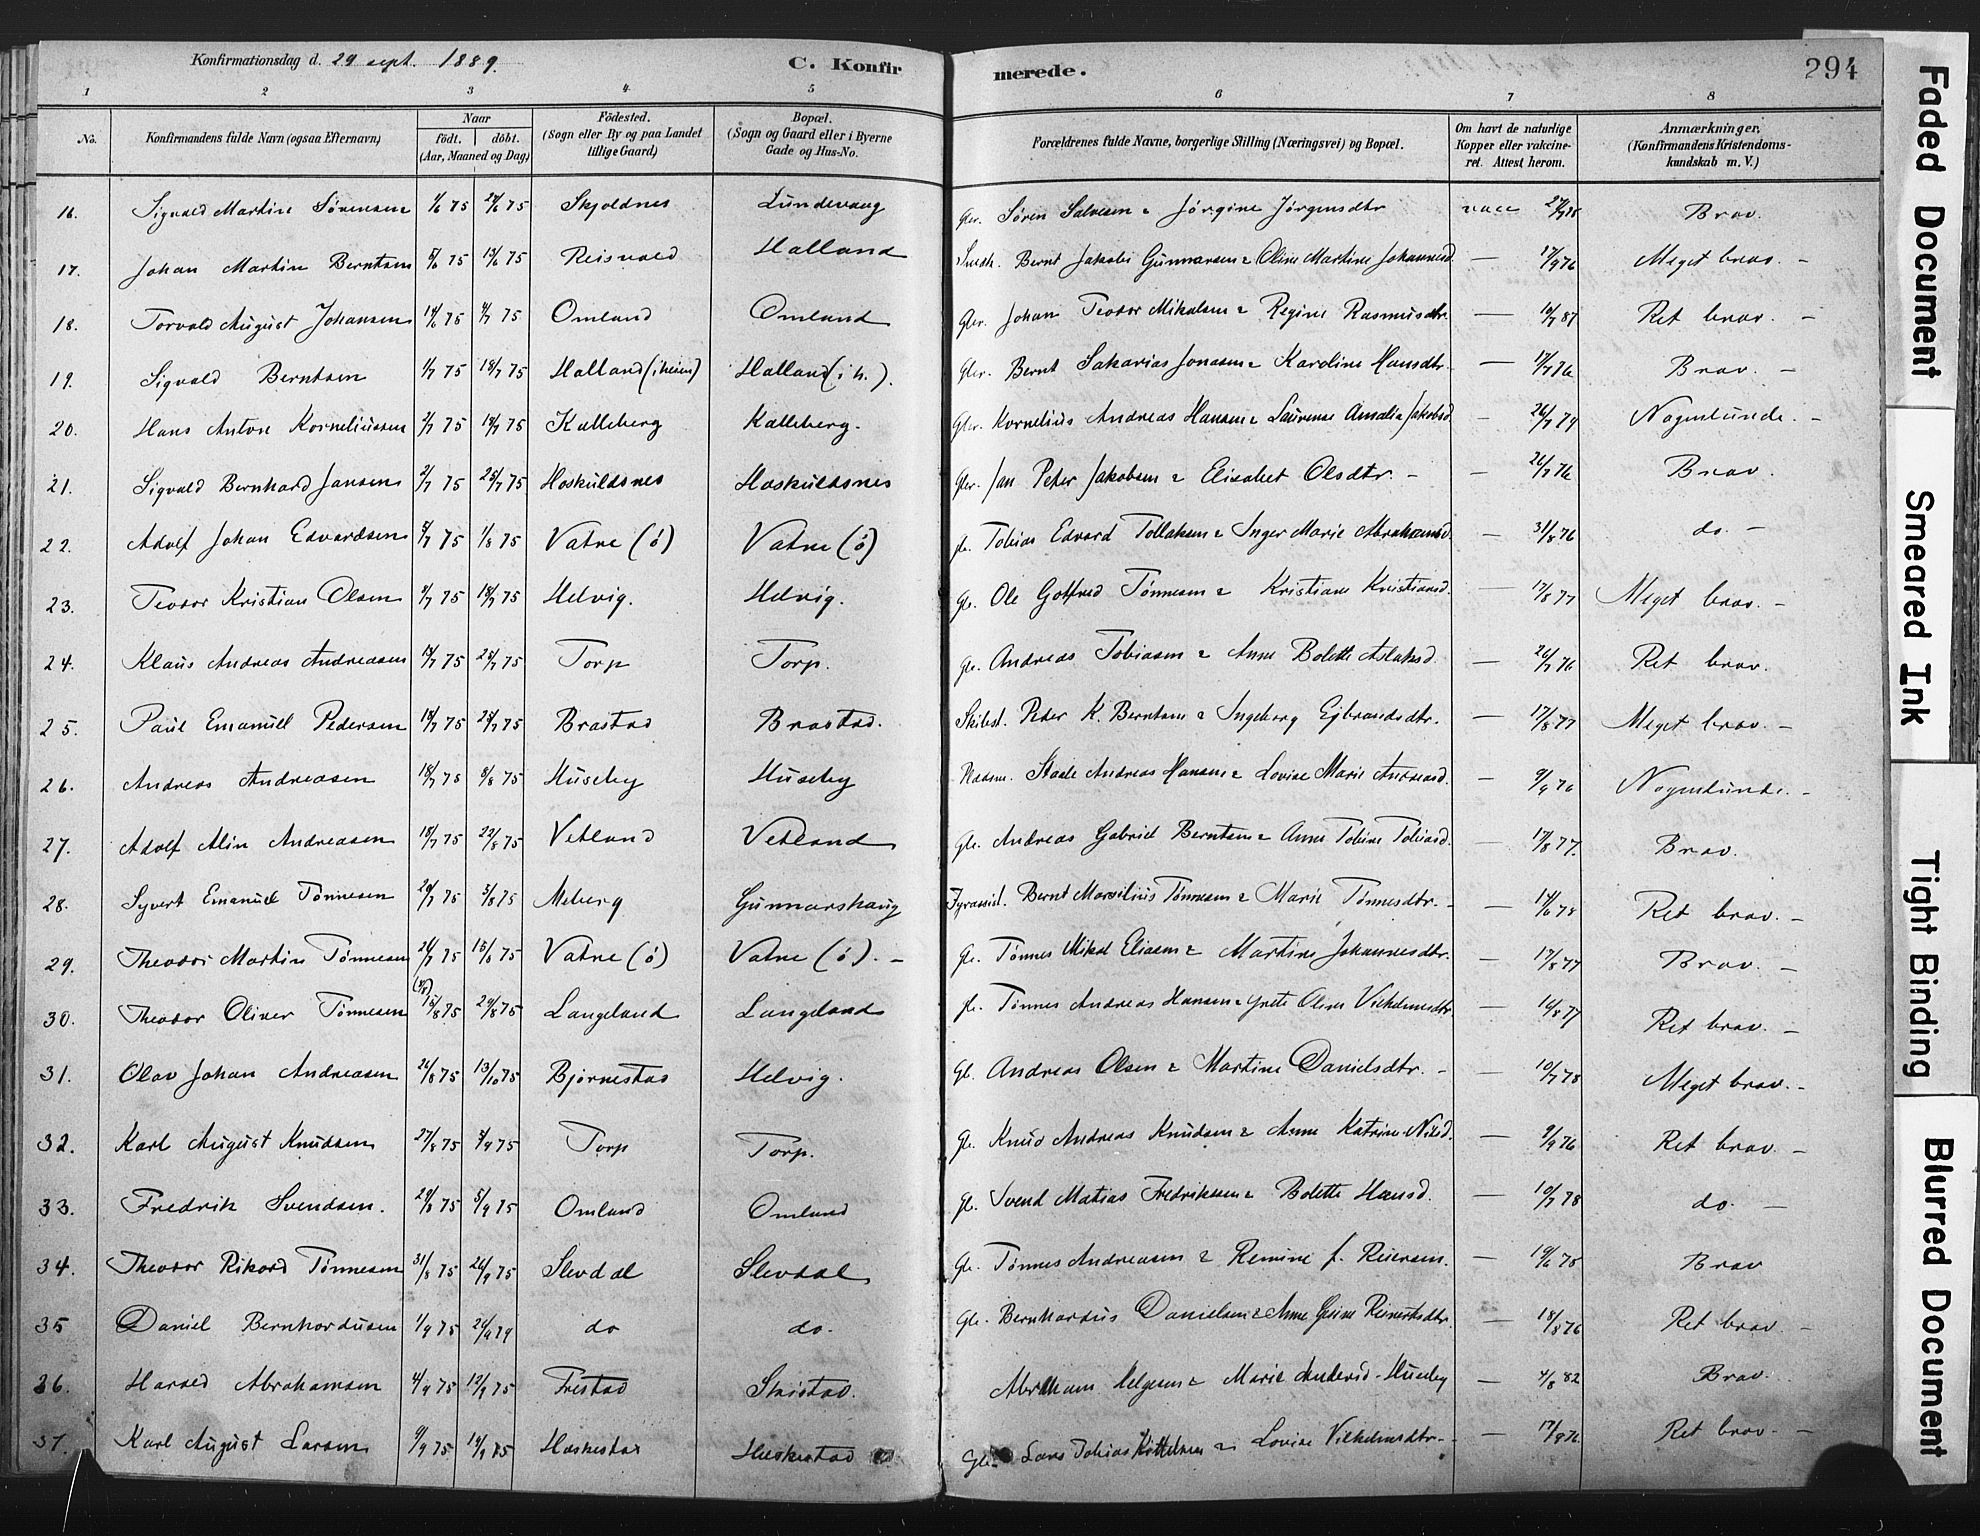 Konfirmationsdag d. 29 sept. 1889. C. Konfirmerede. 294
1 2 3 4 5 6 7 8
No. Konfirmandens fulde Navn (ogsaa Efternavn) Naar født. døbt. (Aar, Maaned og Dag) Fødested. (Sogn eller By og paa Landet tillige Gaard) Bopæl. (Sogn og Gaard eller i Byerne Gade og Hus-No. Forældrenes fulde Navne, borgerlige Stilling (Næringsvei) og Bopæl. Om havt de naturlige Kopper eller vakcineret. Attest herom. Anmærkninger, (Konfirmandens Kristendomskundskab m. V.)
16. Sigvald Martin Sørensen 1/6 75 27/6 75 Skjoldnes Lundevaag Gbr. Søren Salvesen & Jørgine Jørgensdtr vacc Brav.
17. Johan Martin Berntsen 5/6 75 13/6 75 Reisvold Halland Smedm. Bernt Jakobi Gunnarsen & Oline Martine Johannesd. — 17/9 76 Meget brav. —
18. Torvald August Johansen 14/6 75 4/7 75 Omland Omland Gbr. Johan Teodor Mikalsen & Regine Rasmusdtr. — 14/7 87 Ret brav. —
19. Sigvald Berntsen 1/7 75 18/7 75 Halland (i heien) Halland (i h.). Gbr. Bernt Sakarias Jonasen & Karoline Hansdtr. — 17/7 76 Brav. —
20. Hans Anton Korneliussen 2/7 75 18/7 75 Kalleberg Kalleberg. Gbr. Kornelius Andreas Hansen & Laurense Amalia Jakobsd. — 26/7 79 Nogenlunde. —
21. Sigvald Bernhard Jansen 2/7 75 25/7 75 Hoskuldsnes Hoskuldsnes Gbr. Jan Peter Jakobsen & Elisabet Olsdtr. — — 26/7 76 Brav.
22. Adolf Johan Edvardsen 8/7 75 1/8 75 Vatne (ö) Vatne (ö) gb. Tobias Edvard Tollaksen & Inger Marie Abrahamsd. — 31/8 76 do. —
23. Teodor Kristian Olsen 8/7 75 18/7 75 Helvig. Helvig. Gb. Ole Gotfred Tønnesen & Kristiane Kristiansd. — 17/8 77 Meget brav. —
24. Klaus Andreas Andreasen 13/7 75 25/7 75 Torp Torp. Gb. Andreas Tobiasen & Anne Bolette Aslaksd. — 26/7 76 Ret brav.
25. Paul Emanuel Pedersen 18/7 75 25/7 75 Brastad Brastad. Skibst. Peter K. Berntsen & Ingeborg Ejbrandsdtr. — 17/8 77 Meget brav. —
26. Andreas Andreasen 18/7 75 8/8 75 Huseby Huseby Staale Andreas Hansen & Lovise Marie Andreasd. — 9/9 76 Nogenlunde. —
27. Adolf Alin Andreasen 18/7 75 22/8 75 Vetland Vetland Gb. Andreas Gabriel Berntsen & Anne Tobine Tobiasd. — 17/8 77. Brav.
28. Syvert Emanuel Tønnesen 20/7 75 5/8 75 Meberg Gunnarshaug Bernt Marsilius Tønnesen & Marie Tønnesdtr. — — 14/6 78 Ret brav. —
29. Theodor Martin Tønnesen 26/7 75 15/8 75 Vatne (ö) Vatne (ö). — Gb. Tønnes Mikal Eliasen & Martine Johannesdtr. — 17/8 77 Brav. —
30. Theodor Oliver Tønnesen 15/8 75 29/8 75 Langeland Langeland gb. Tønnes Andreas Hansen & Grete Oline Vilhelmsdtr. — 16/8 77 Ret brav. —
31. Olav Johan Andreasen 26/8 75 13/10 75 Bjørnestad Helvig. Gb. Andreas Olsen & Martine Danielsdtr. — — 10/7 78 Meget brav. —
32. Karl August Knudsen 27/8 75 5/9 75 Torp Torp. Gb. Knud Andreas Knudsen & Anne Katrine Nilsd. — 9/9 76 Ret brav. —
33. Fredrik Svendsen. 29/8 75 5/9 75 Omland Omland gb. Svend Matias Fredriksen & Bolette Hansd. — 10/7 78 do. —
34. Theodor Rikord Tønnesen 31/8 75 26/9 75 Slevdal Slevdal Gb. Tønnes Andreasen & Remine f. Reiersen. — 19/6 78 Brav
35 Daniel Bernhardusen 1/9 75 26/9 79 do do. Gb. Bernhardus Danielsen & Anne Gesine Reinertsdtr. — 18/8 76 Ret brav. —
36. Harald Abrahamsen 4/9 75 12/9 75 Frestad Skistad. Abraham Helgesen & Marie Andersd. Huseby — 4/8 82 Brav.
37. Karl August Larsen 9/9 75 19/9 75 Haskestad Heskestad Gb. Lars Tobias Kittelsen & Lovise Vilhelmsdtr. — — 17/9 76 Ret brav. —
Faded Document
Smeared Ink
Tight Binding
Blurred Document